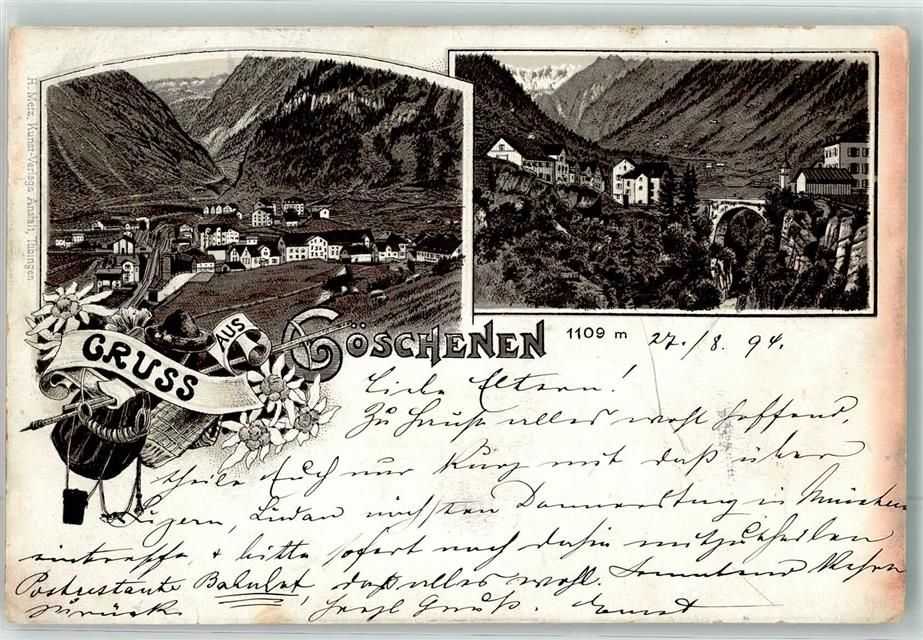 H. Metz, Kunst-Verlags Anstalt, Tübingen
GRUSS AUS
GÖSCHENEN 1109 m 27./8. 94.
Liebe Eltern!
Zu Hause alles wohl hoffend,
theile Euch nur kurz mit daß über
Luzern, Lindau nächsten Donnerstag in München
eintreffe, & bitte sofort nach dahin mitzutheilen
Postrestante Bahnhof, daß alles wohl.
zurück. Herzl Gruß.